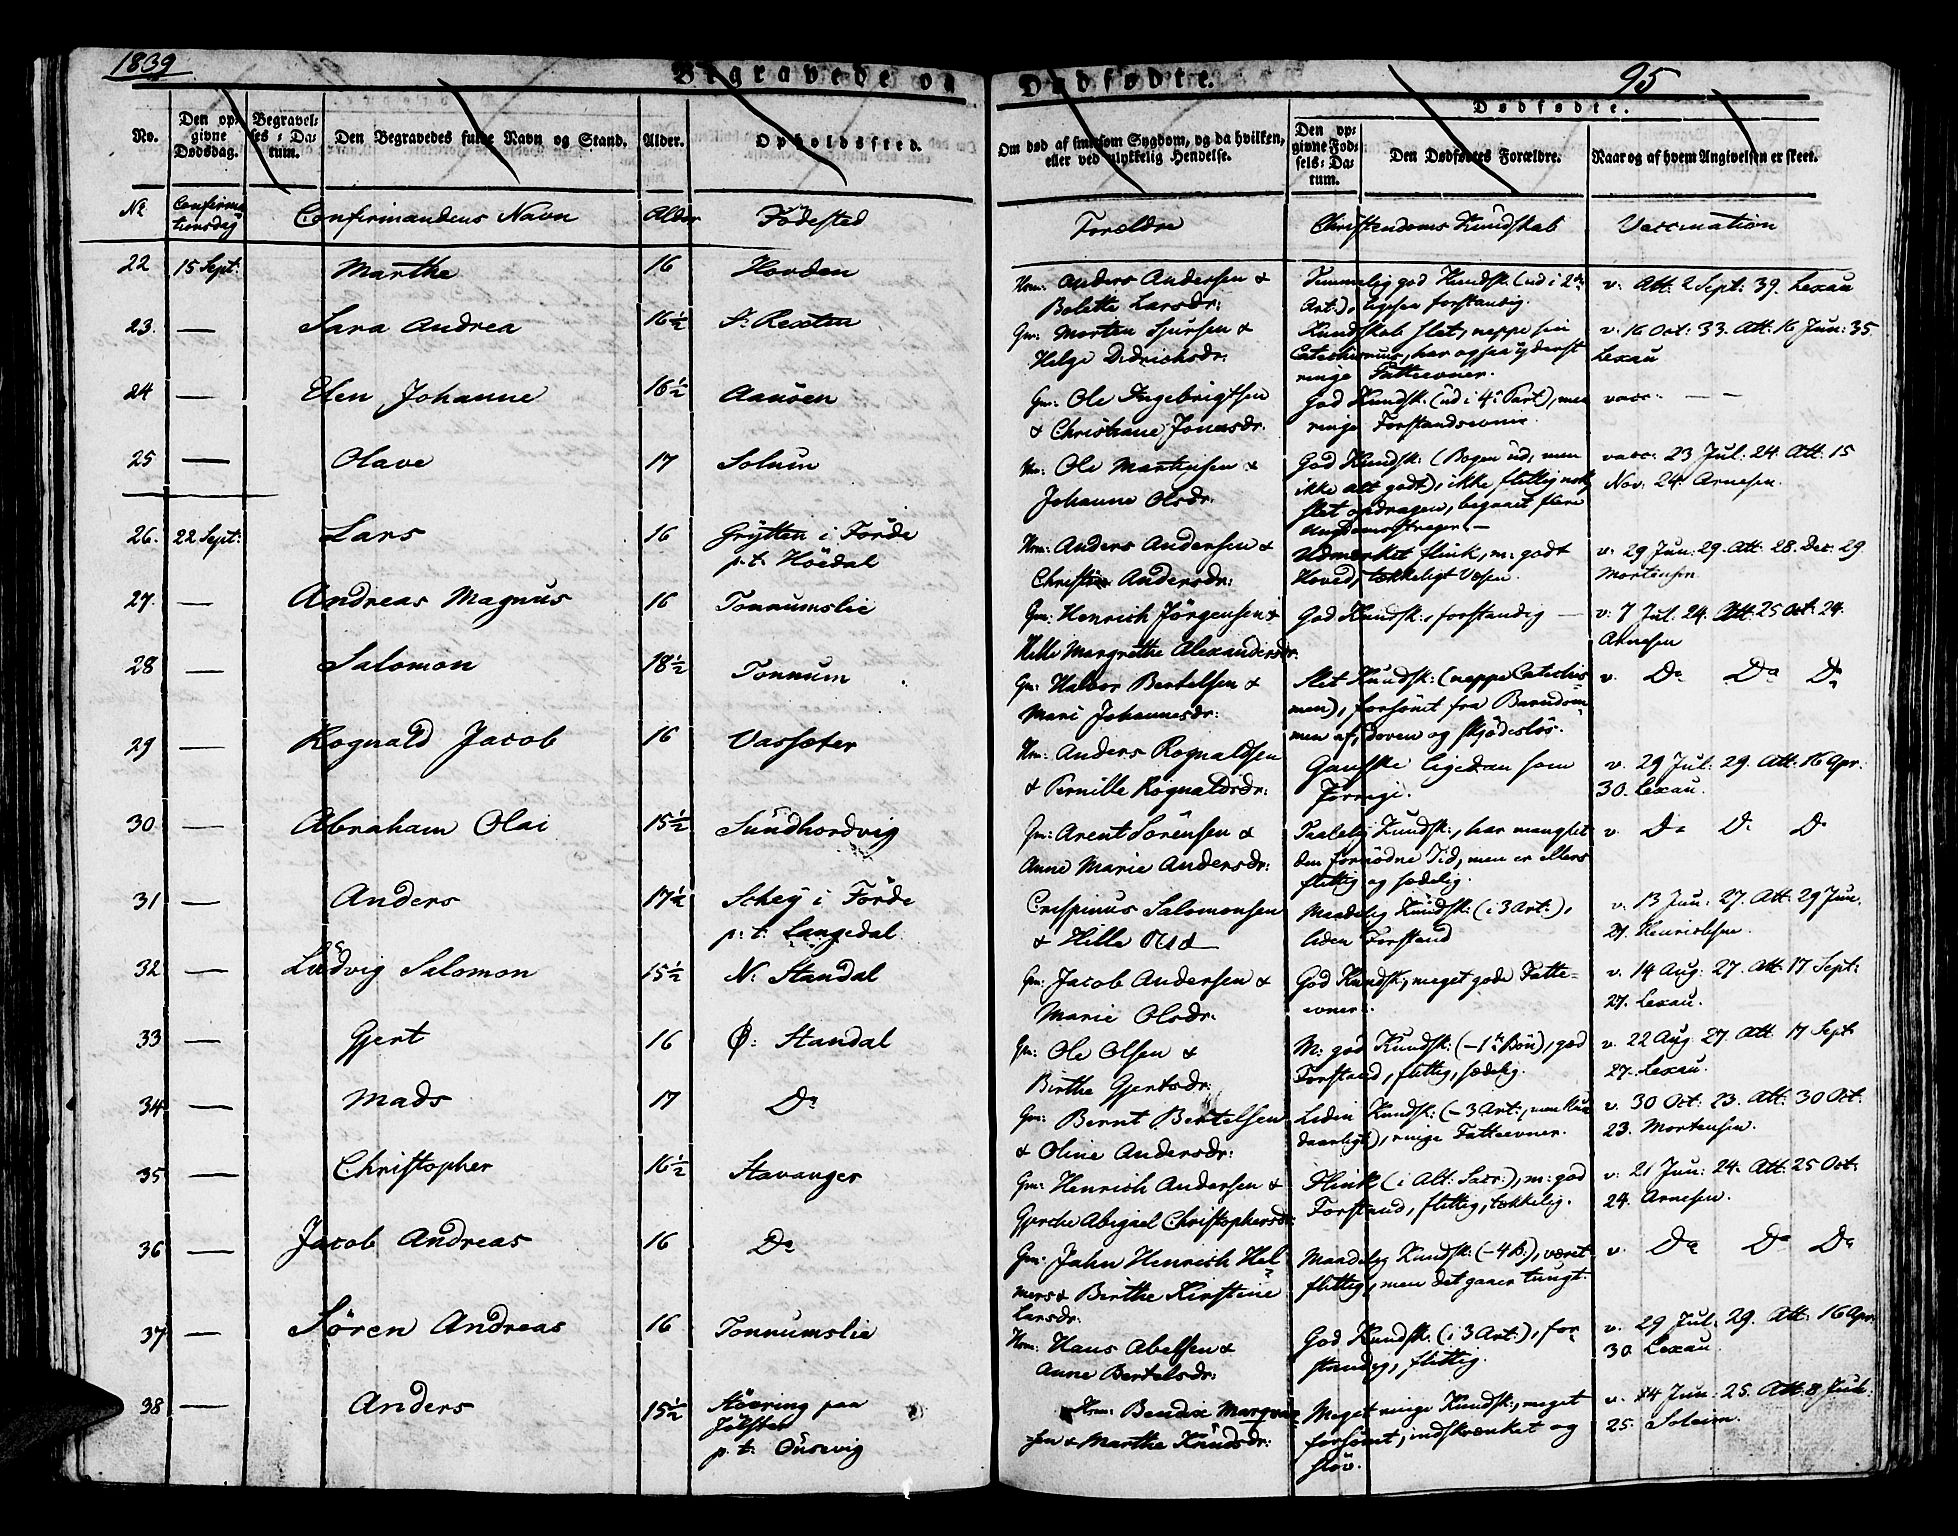 1839
Begravede og Dødfødte.
95
No.
Den op-
givne
Dødsdag.
Begravel-
ses-Da-
tum.
Den Begravedes fulde Navn og Stand.
Alder.
Opholdssted.
Om død af smitsom Sygdom, og da hvilken,
eller ved ulykkelig Hendelse.
Dødfødte.
Den op-
givne Fød-
sels-Da-
tum.
Den Dødfødtes Forældre.
Naar og af hvem Angivelsen er skeet.
No
Confirma
tionsdag
Confirmandens Navn
Alder
Födested
Forældre
Christendoms Kundskab
Vaccination
22 15 Sept: Marthe 16 Hovden
Hm: Anders Andersen &
Bolette Larsdr:
Temmelig god Kundsk: (ud i 2den
Art:), ligesaa forstandig.
v. Att: 2 Sept: 39. Lexau
23. — Sara Andrea 16½ I: Rexten
Gm: Morten Sjursen &
Helge Didrichsdr:
Kundskab slet, neppe sin
Catechismus, har ogsaa yderst
ringe Fatteevner.
v. 16 Oct: 33. Att: 16 Jun: 35
Lexau
24 — Elen Johanne 16½ Aanöen
Gm: Ole Ingebrigtsen
& Christiane Jonasdr.
God Kundsk: (ud i 4de Part), men
ringe Forstandsevne.
vacc. — —
25 — Olave 17 Solum
Nm: Ole Marthinsen &
Johanne Olsdr.
God Kundsk: (Bogen ud, men
ikke alt godt), ikke flittig nok,
slet opdragen, begaaet flere
Ungdomsstreger. —
vacc. 23 Jul: 24. Att: 15
Nov: 24. Arnesen.
26. 22 Sept: Lars 16 Grytten i Förde
p. t. Höedal
Hm: Anders Andersen &
Christine Andersdr:
Udmærket flink, m: godt
Hoved, tækkeligt Væsen.
v. 29 Jun: 29. Att: 28. Dec: 29
Mortensen
27. — Andreas Magnus 16 Tonnumslie
Gm: Henrich Jörgensen &
Hille Margrethe Alexandersdr:
God Kundsk:, forstandig —
v. 7 Jul: 24. Att: 25 Oct: 24.
Arnesen
28 — Salomon 18½ Tonnum
Gm: Halvor Bertelsen &
Mari Johannesdr:
Slet Kundsk: (neppe Catechis-
men), forsömt fra Barndom-
men af, doven og skjödeslös.
v. Do Do Do
29 — Rognald Jacob 16 Vassæter
Hm: Anders Rognaldsen
& Pernille Rognaldsdr:
Ganske ligedan som
Forrige.
v. 29 Jul: 29. Att: 16 Apr:
30. Lexau.
30. — Abraham Olai 15½ Sündhordvig
Gm: Arent Sörensen &
Anne Marie Andersdr:
Taalelig Kundsk:, har manglet
den fornödne Tid, men er ellers
flittig og sædelig.
v. Do Do Do
31 — Anders 17½ Schey i Förde
p: t: Langedal
Crispinus Salomonsen
& Hille Olsd
Maadelig Kundsk: (i 3 Art:),
liden Forstand
v. 13 Jun: 27. Att: 29 Jun.
27. Henrichsen.
32 — Ludvig Salomon 15½ N: Standal
Gm: Jacob Andersen &
Marie Olsdr:
God Kundsk:, meget gode Fatte-
evner.
v. 14 Aug: 27. Att: 17 Sept:
27. Lexau.
33 — Gjert 16 Ø: Standal
Gm: Ole Olsen &
Birthe Gjertsdr:
M: god Kundsk: (-1ste Bön), god
Forstand, flittig, sædelig.
v. 22 Aug: 27. Att 17 Sept
27. Lexau.
34 — Mads 17 Do
Gm: Bernt Bertelsen
& Oline Andersdr:
Liden Kundsk: (-3 Art:, men kun
daarligt), ringe Fatteevner.
v. 30 Oct: 23. Att: 30 Oct:
23. Mortensen.
35 — Christopher 16½ Stavanger
Gm: Henrich Andersen &
Gjerche Abigael Christophersdr:
Flink (i Alt: Sacr:), m: god
Forstand, flittig, tækkelig.
v. 21 Jun: 24. Att: 25 Oct:
24. Arnesen.
36 — Jacob Andreas 16 Do
Gm: Jahn Henrich Hel-
mers & Birthe Kirstine
Larsdr:
Maadelig Kundsk: (-4 B:), været
flittig, men det gaaer tungt.
v. Do Do Do
37 — Sören Andreas 16 Tonnumslie
Hm: Hans Abelsen &
Anne Bertelsdr:
God Kundsk: (i 3 Art:), for-
standig, flittig.
v. 29 Jul: 29. Att: 16 Apr:
30 Lexau.
38 — Anders 15½ Stöering paa
Jölster
p: t: Ousevig
Hm: Bendix Margvar-
sen & Marthe Knudsdr:
Meget ringe Kundsk:, meget
forsömt, indskrænket og
slöv.
v. 14 Jun: 25. Att: 8 Jul:
25. Soleim.